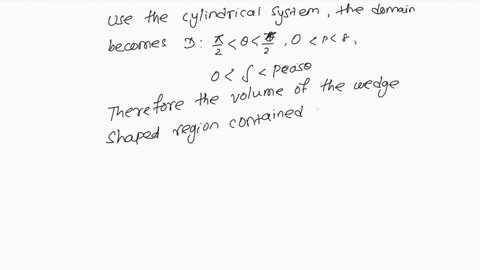 Use the cylindrical system, the domain
becomes D: π/2 < θ < π/2, 0 < P < 8,
0 < ʃ < pcosθ
Therefore the volume of the wedge
shaped region contained